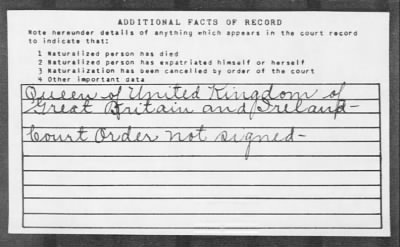 ADDITIONAL FACTS OF RECORD
Note hereunder details of anything which appears in the court record
to indicate that:
1 Naturalized person has died
2 Naturalized person has expatriated himself or herself
3 Naturalization has been cancelled by order of the court
4 Other important data
Queen of United Kingdom of
Great Britain and Ireland-
Court Order not signed-